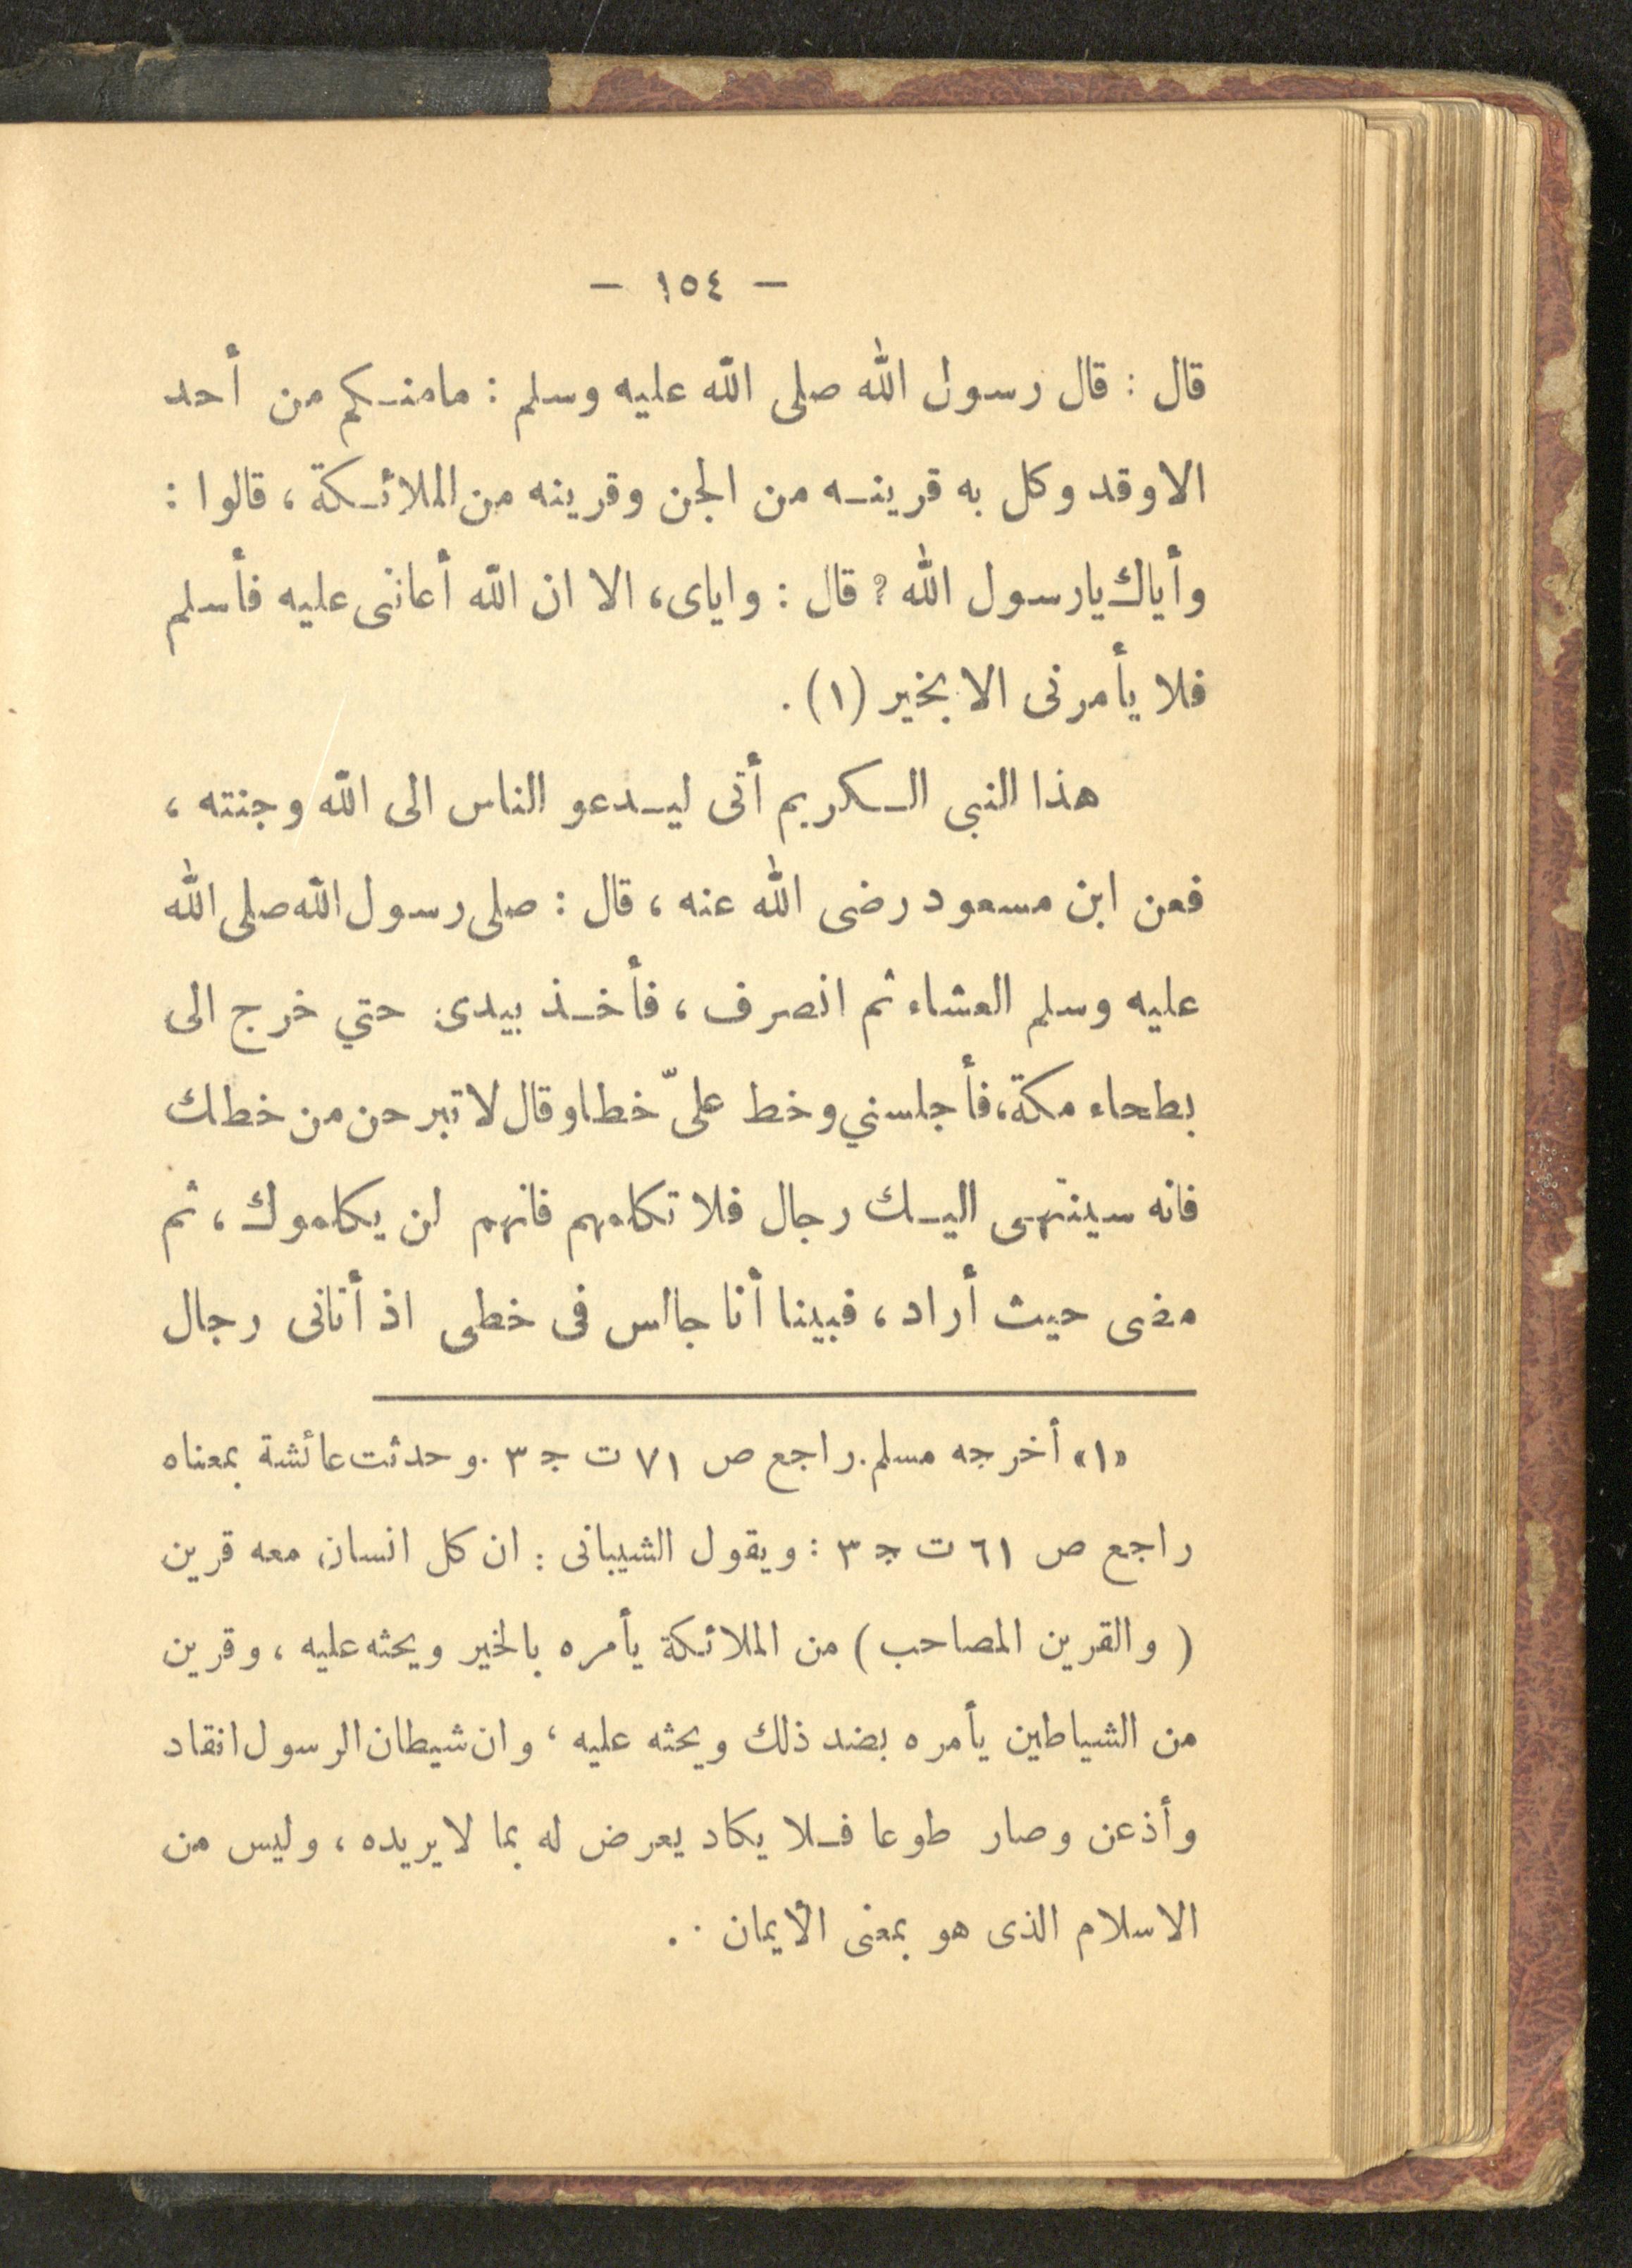 — ١٥٤ —
قال : قال رسول الله صلى الله عليه وسلم : مامنكم من أحد
الا وقد وكل به قرينه من الجن وقرينه من الملائكة ، قالوا :
وأياك يارسول الله ؟ قال : واياى ، الا ان الله أعاننى عليه فأسلم
فلا يأمرنى الا بخير (١) .
هذا النبى الكريم أتى ليدعو الناس الى الله وجنته ،
فعن ابن مسعود رضى الله عنه ، قال : صلى رسول الله صلى الله
عليه وسلم العشاء ثم انصرف ، فأخذ بيدى حتي خرج الى
بطحاء مكة ، فأجلسني وخط علىّ خطا وقال لا تبرحن من خطك
فانه سينتهى اليك رجال فلا تكلمهم فانهم لن يكلموك ، ثم
مضى حيث أراد ، فبينا أنا جالس فى خطى اذ أتانى رجال
«١» أخرجه مسلم . راجع ص ٧١ ت ج ٣ . وحدثت عائشة بمعناه
راجع ص ٦١ ت ج ٣ : ويقول الشيبانى : ان كل انسان معه قرين
( والقرين المصاحب ) من الملائكة يأمره بالخير ويحثه عليه ، وقرين
من الشياطين يأمره بضد ذلك ويحثه عليه ، وان شيطان الرسول انقاد
وأذعن وصار طوعا فلا يكاد يعرض له بما لا يريده ، وليس من
الاسلام الذى هو بمعنى الأيمان . .